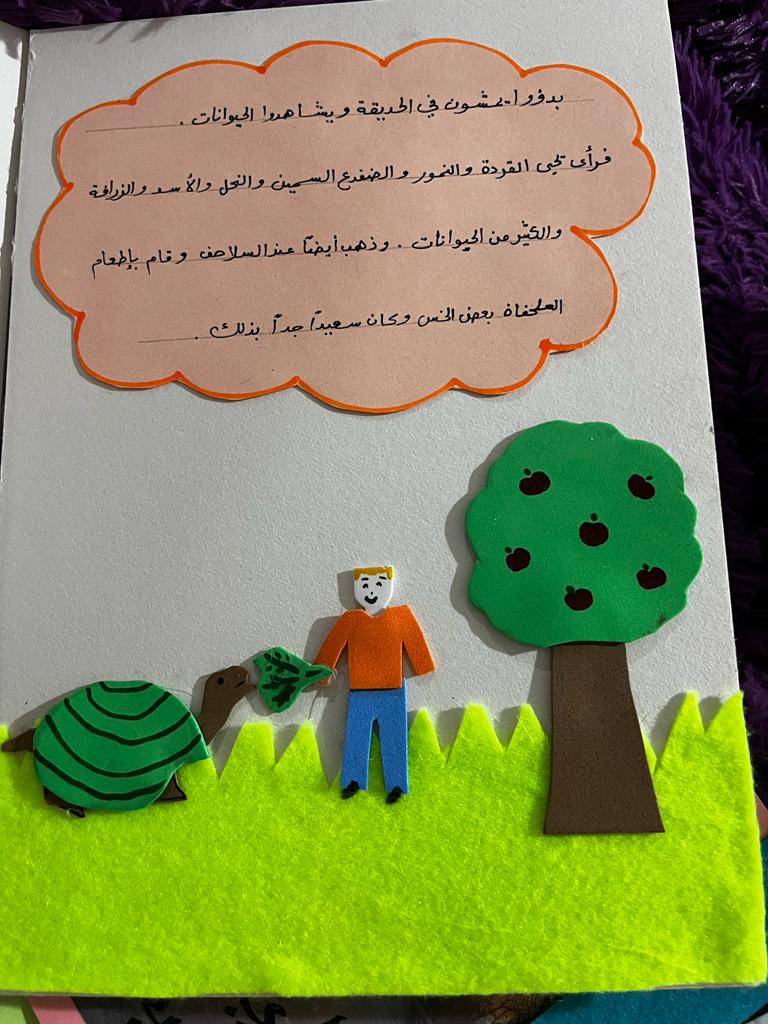 بدؤوا يمشون في الحديقة ويشاهدوا الحيوانات .
فرأى يحيى القردة والنمور والضفدع السمين والنحل والأسد والزرافة
والكثير من الحيوانات . وذهب أيضاً عند السلاحف وقام بإطعام
السلحفاة بعض الخس وكان سعيداً جداً بذلك .